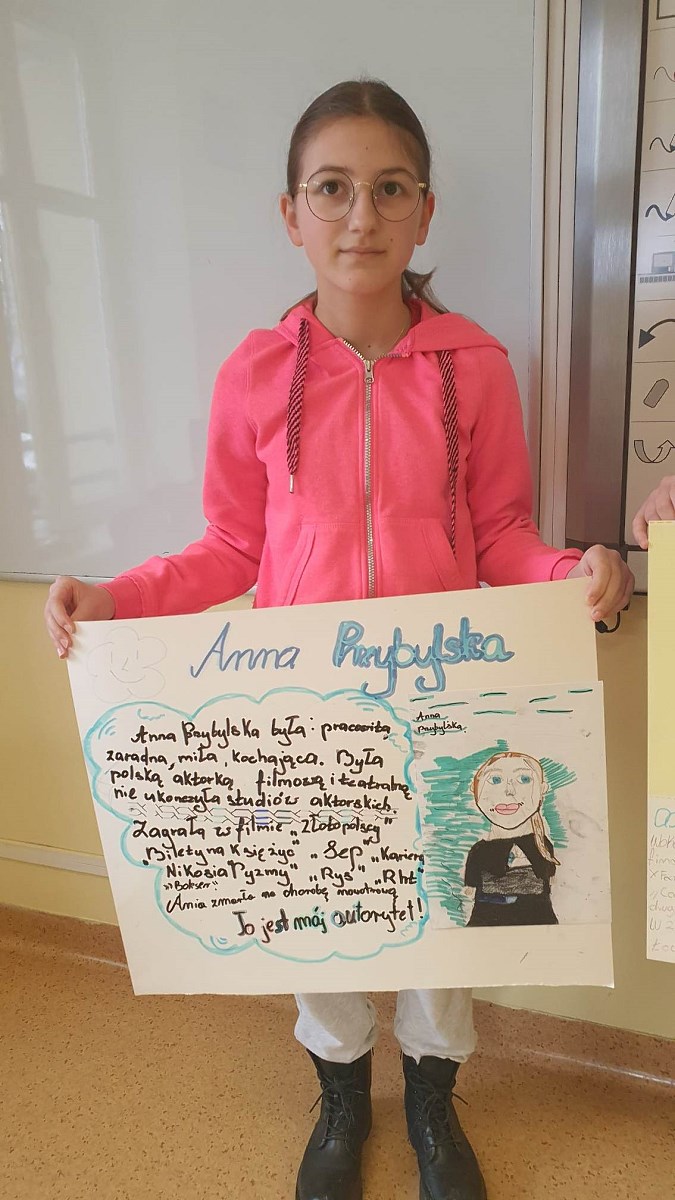 Anna Przybylska
Anna Przybylska była: pracowita,
zaradna, miła, kochająca. Była
polską aktorką filmową i teatralną
nie ukończyła studiów aktorskich.
Zagrała w filmie „Złotopolscy"
„Bilety na Księżyc" „Sęp" „Kariera
Nikosia Dyzmy" „Ryś" „Rht"
„Bokser"
Ania zmarła na chorobę nowotrową
To jest mój autorytet!
Anna
Przybylska